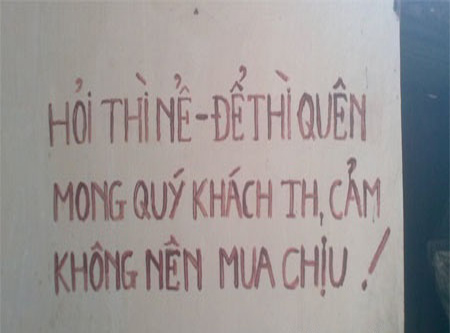 HỎI THÌ NỂ - ĐỂ THÌ QUÊN
MONG QUÝ KHÁCH TH, CẢM
KHÔNG NÊN MUA CHỊU !